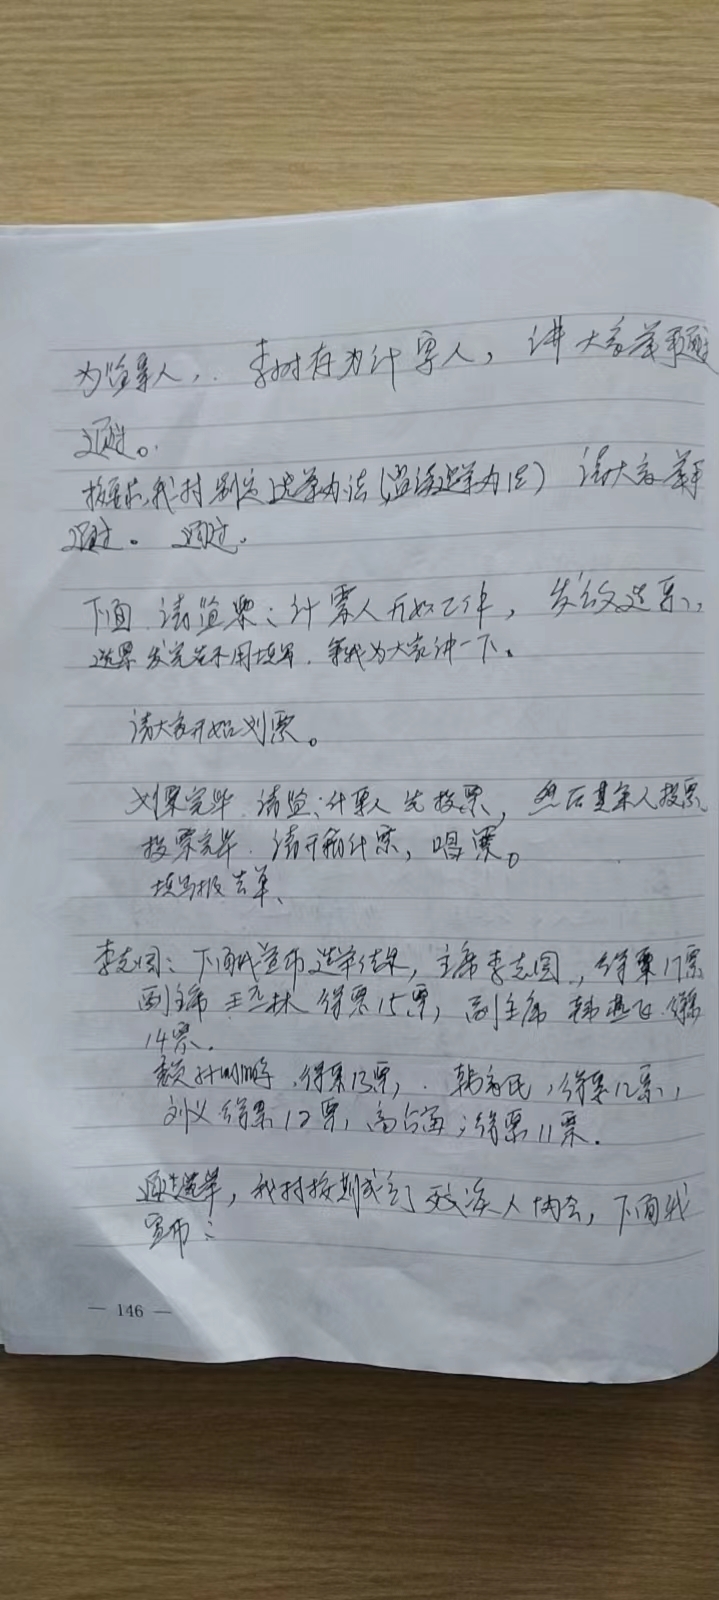 为监票人，. 李树存为计票人，请大家举手通过
通过。
按要求，我村制定选举办法（宣读选举办法） 请大家举手
通过。 通过.
下面 请监票、计票人开始工作， 发放选票、
选票发完先不用填写. 等我为大家讲一下。
请大家开始划票。
划票完毕. 请监、计票人先投票， 然后其余人投票
投票完毕. 请开箱计票，唱票。
填写报告单、
李志国：下面我宣布选举结果，主席李志国，得票17票
副主席 王 林 得票15票，副主席 韩 飞. 得票
14票.
得票13票，. 韩 民，得票12票、
刘义 得票12票，高占海，得票11票.
通过选举，我村按期成立了残疾人协会，下面我
宣布：
— 146 —